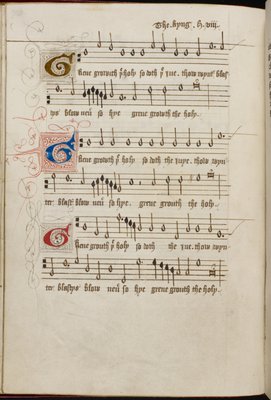 The kyng . h . viii .
Grene growith þe holy so doth þe iue . thow wynt' blas
tys blow neu' so hye grene growth the holy .
Grene growith þe holy so doth the iuye . thow wyn
ter blastys blow neu' so hye grene growth the holy .
Grene growith þe holy so doth the iue . thow wyn
ter blastys blow neu' so hye grene growth the holy .